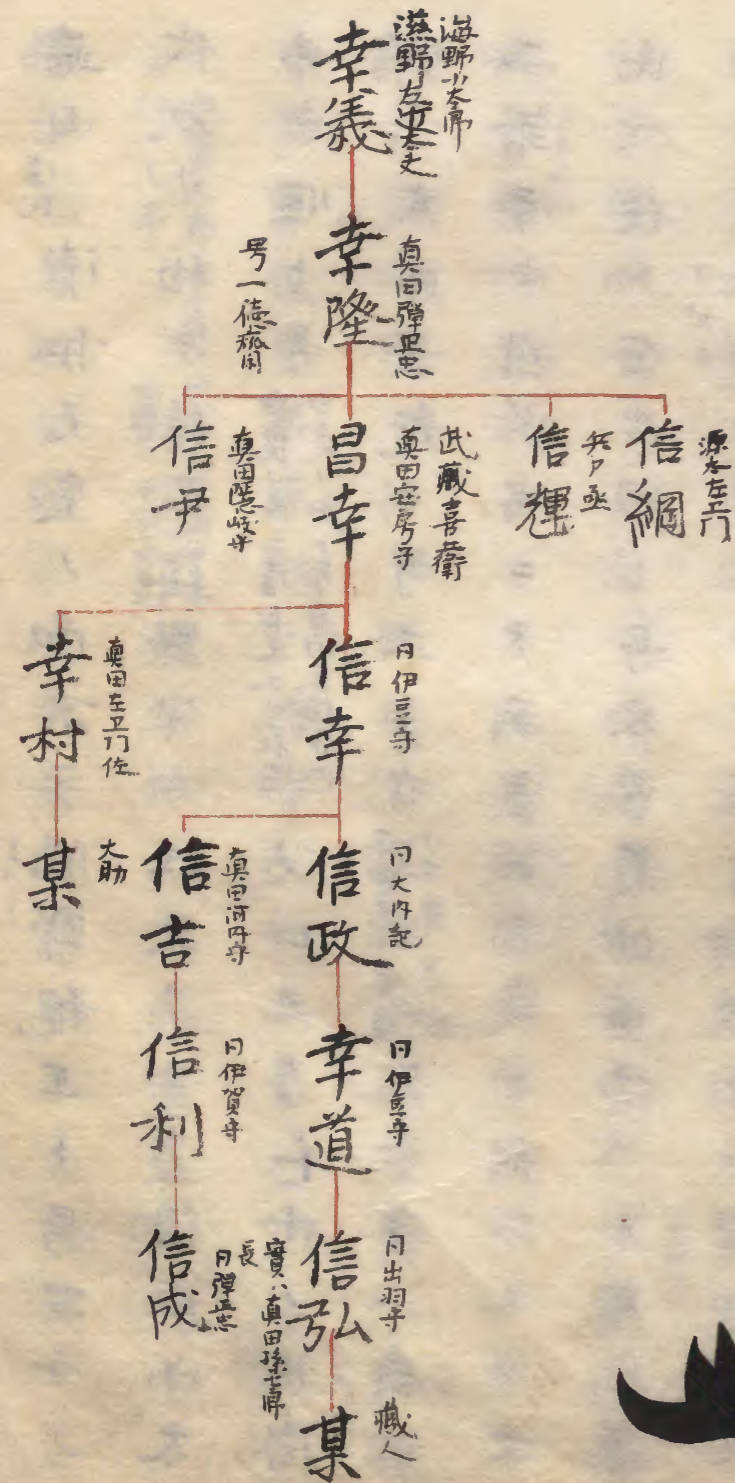 海野小太郎
滋野左京大夫
幸義
真田弾正忠
幸隆
号一徳斎
源太左卫门
信綱
兵ア丞
信輝
武藏喜兵衛
真田安房守
昌幸
真田隠岐守
信尹
同伊豆守
信幸
真田左卫门佐
幸村
同大内記
信政
真田河内守
信吉
大助
某
同伊豆守
幸道
同伊賀守
信利
同出羽守
信弘
實ハ真田孫七郎
長
同弾正忠
信成
蔵人
某